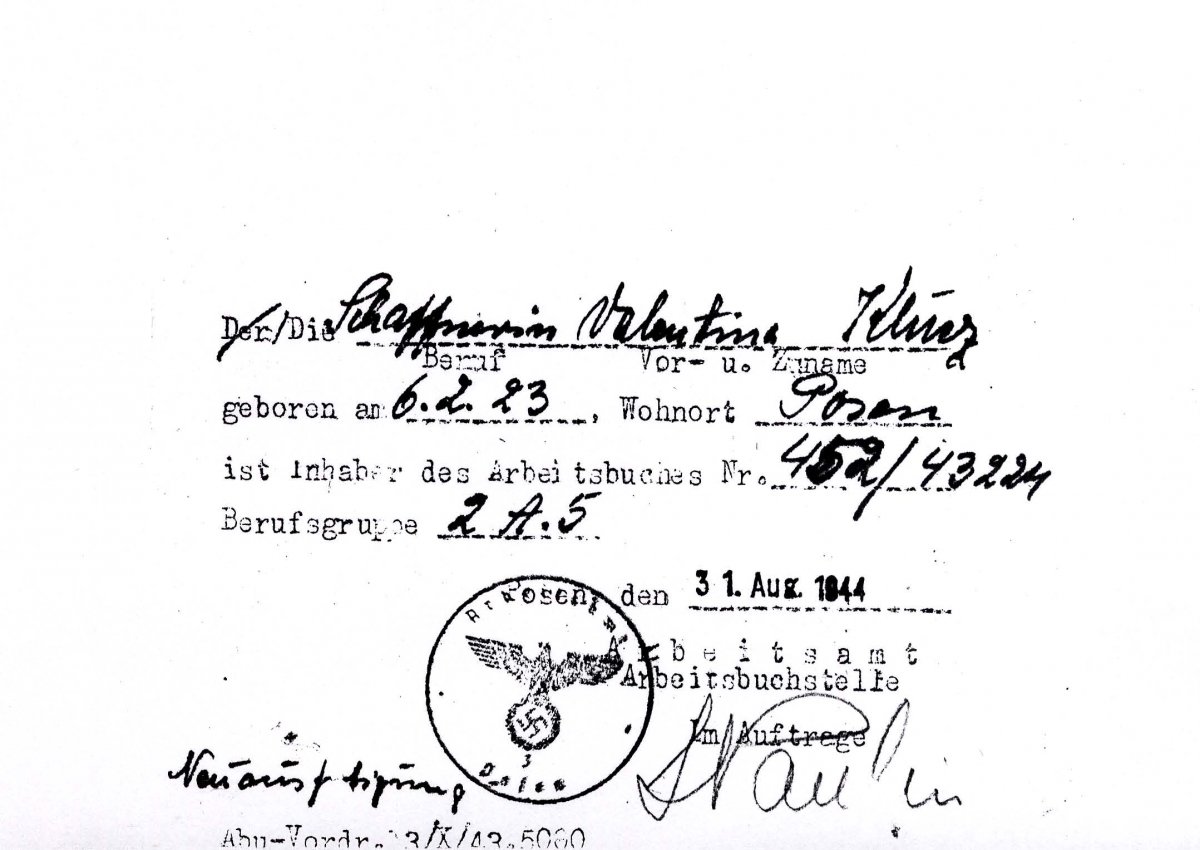 Der/Die Schaffnerin Valentina
Beruf Vor- u. Zuname
geboren am 6.2.23, Wohnort Posen
ist Inhaber des Arbeitsbuches Nr. 452/43224
Berufsgruppe 2 A.5
Posen, den 31. Aug. 1944
Arbeitsamt
Arbeitsamt
Arbeitsbuchstelle
Im Auftrage
3
Posen
Neuausfertigung
Abu-Vordr. 13/X/43.5000